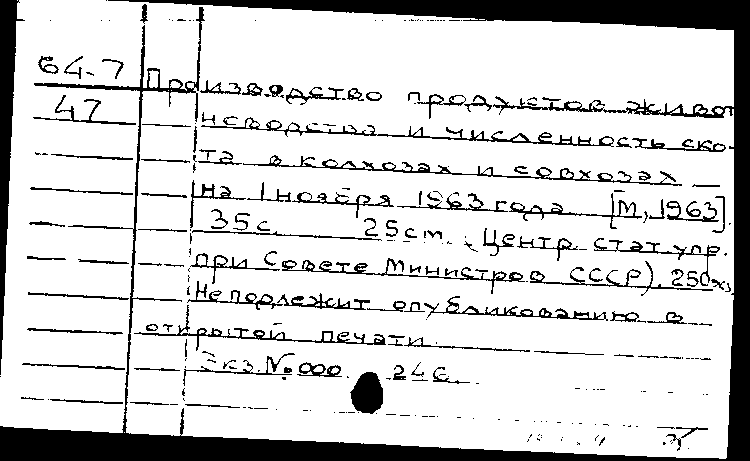 64-7
47
Производство продуктов живот
новодства и численность ско-
та в колхозах и совхозах —
на 1 ноября 1963 года [М, 1963].
35 с. 25 см. (Центр. стат. упр.
при Совете Министров СССР). 250 экз.
Не подлежит опубликованию в
открытой печати.
Экз. № 000 24 с.